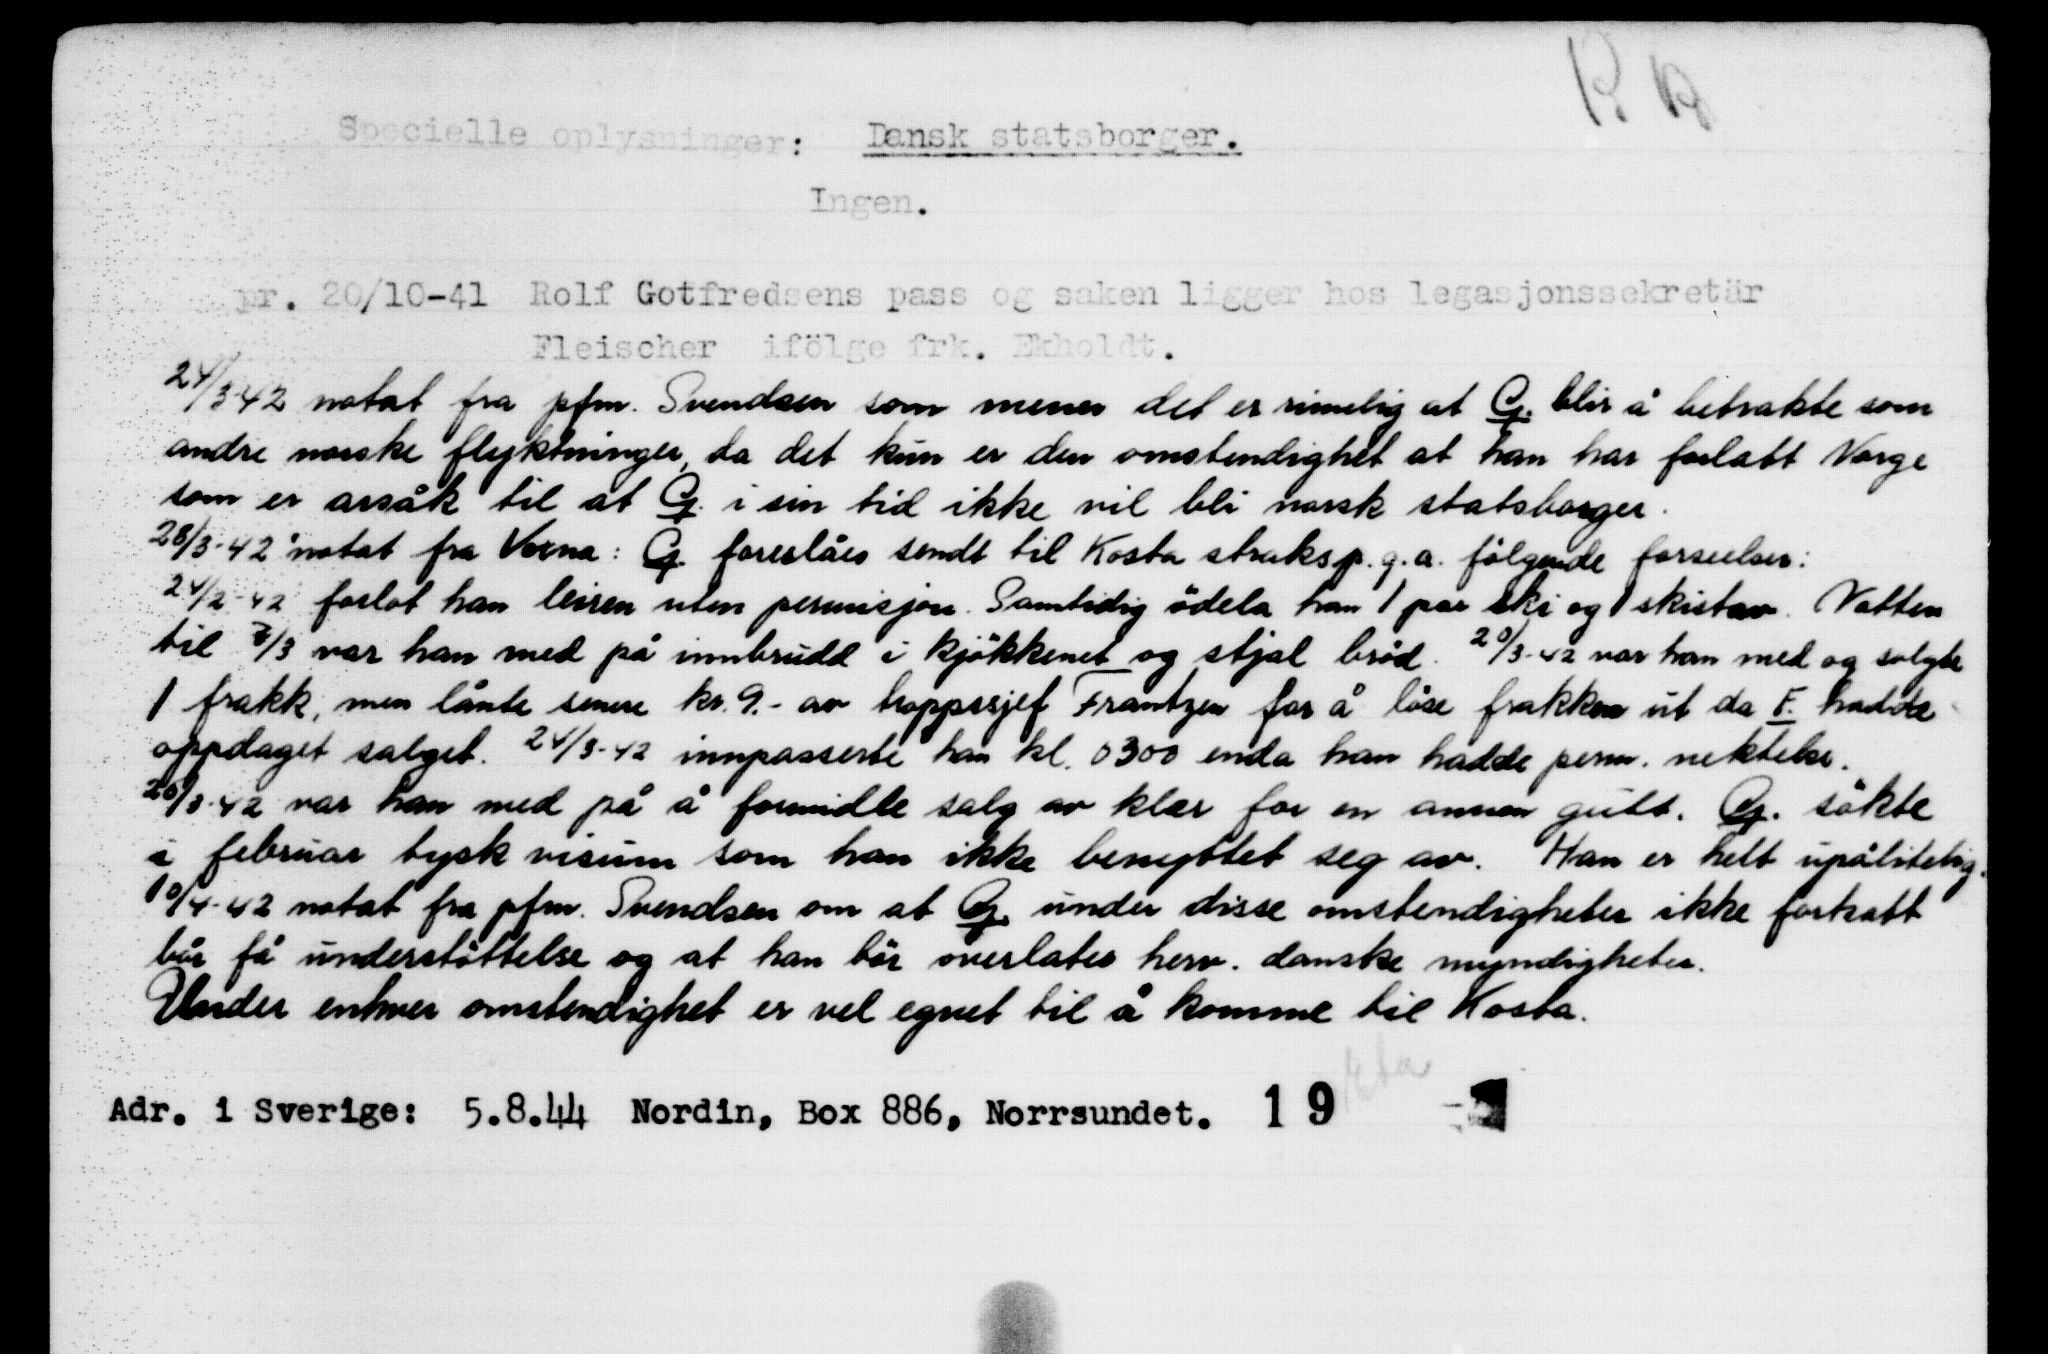 Specielle oplysninger: Dansk statsborger.
Ingen.
pr. 20/10-41 Rolf Gotfredsens pass og saken ligger hos legasjonssekretär
Fleischer ifölge frk. Ekholdt.
24/3-42 notat fra pfm. Svendsen som mener det er rimelig at G. blir å betrakte som
andre norske flyktninger, da det kun er den omstendighet at han har forlatt Norge
som er arsåk til at G. i sin tid ikke vil bli norsk statsborger.
28/3-42 notat fra Voxna: G. foreslåes sendt til Kosta straks p.g.a. fölgende forseelser:
24/2-42 forlot han leiren uten permisjon. Samtidig ödela han 1 par ski og 1 skistav. Natten
til 7/3 var han med på innbrudd i kjökkenet og stjal bröd. 20/3-42 var han med og solgte
1 frakk, men lånte senere kr. 9.- av troppssjef Frantzen for å löse frakken ut da F. hadde
oppdaget salget. 24/3-42 innpasserte han kl. 0300 enda han hadde perm. nektelse.
26/3-42 var han med på å formidle salg av klær for en annen gutt. G. sökte
i februar tysk visum som han ikke benyttet seg av. Han er helt upålitelig.
10/4-42 notat fra pfm. Svendsen om at G. under disse omstendigheter ikke fortsatt
bör få understöttelse og at han bör overlates herv. danske myndigheter.
Under enhver omstendighet er vel egnet til å komme til Kosta.
Adr. i Sverige: 5.8.44 Nordin, Box 886, Norrsundet. 19